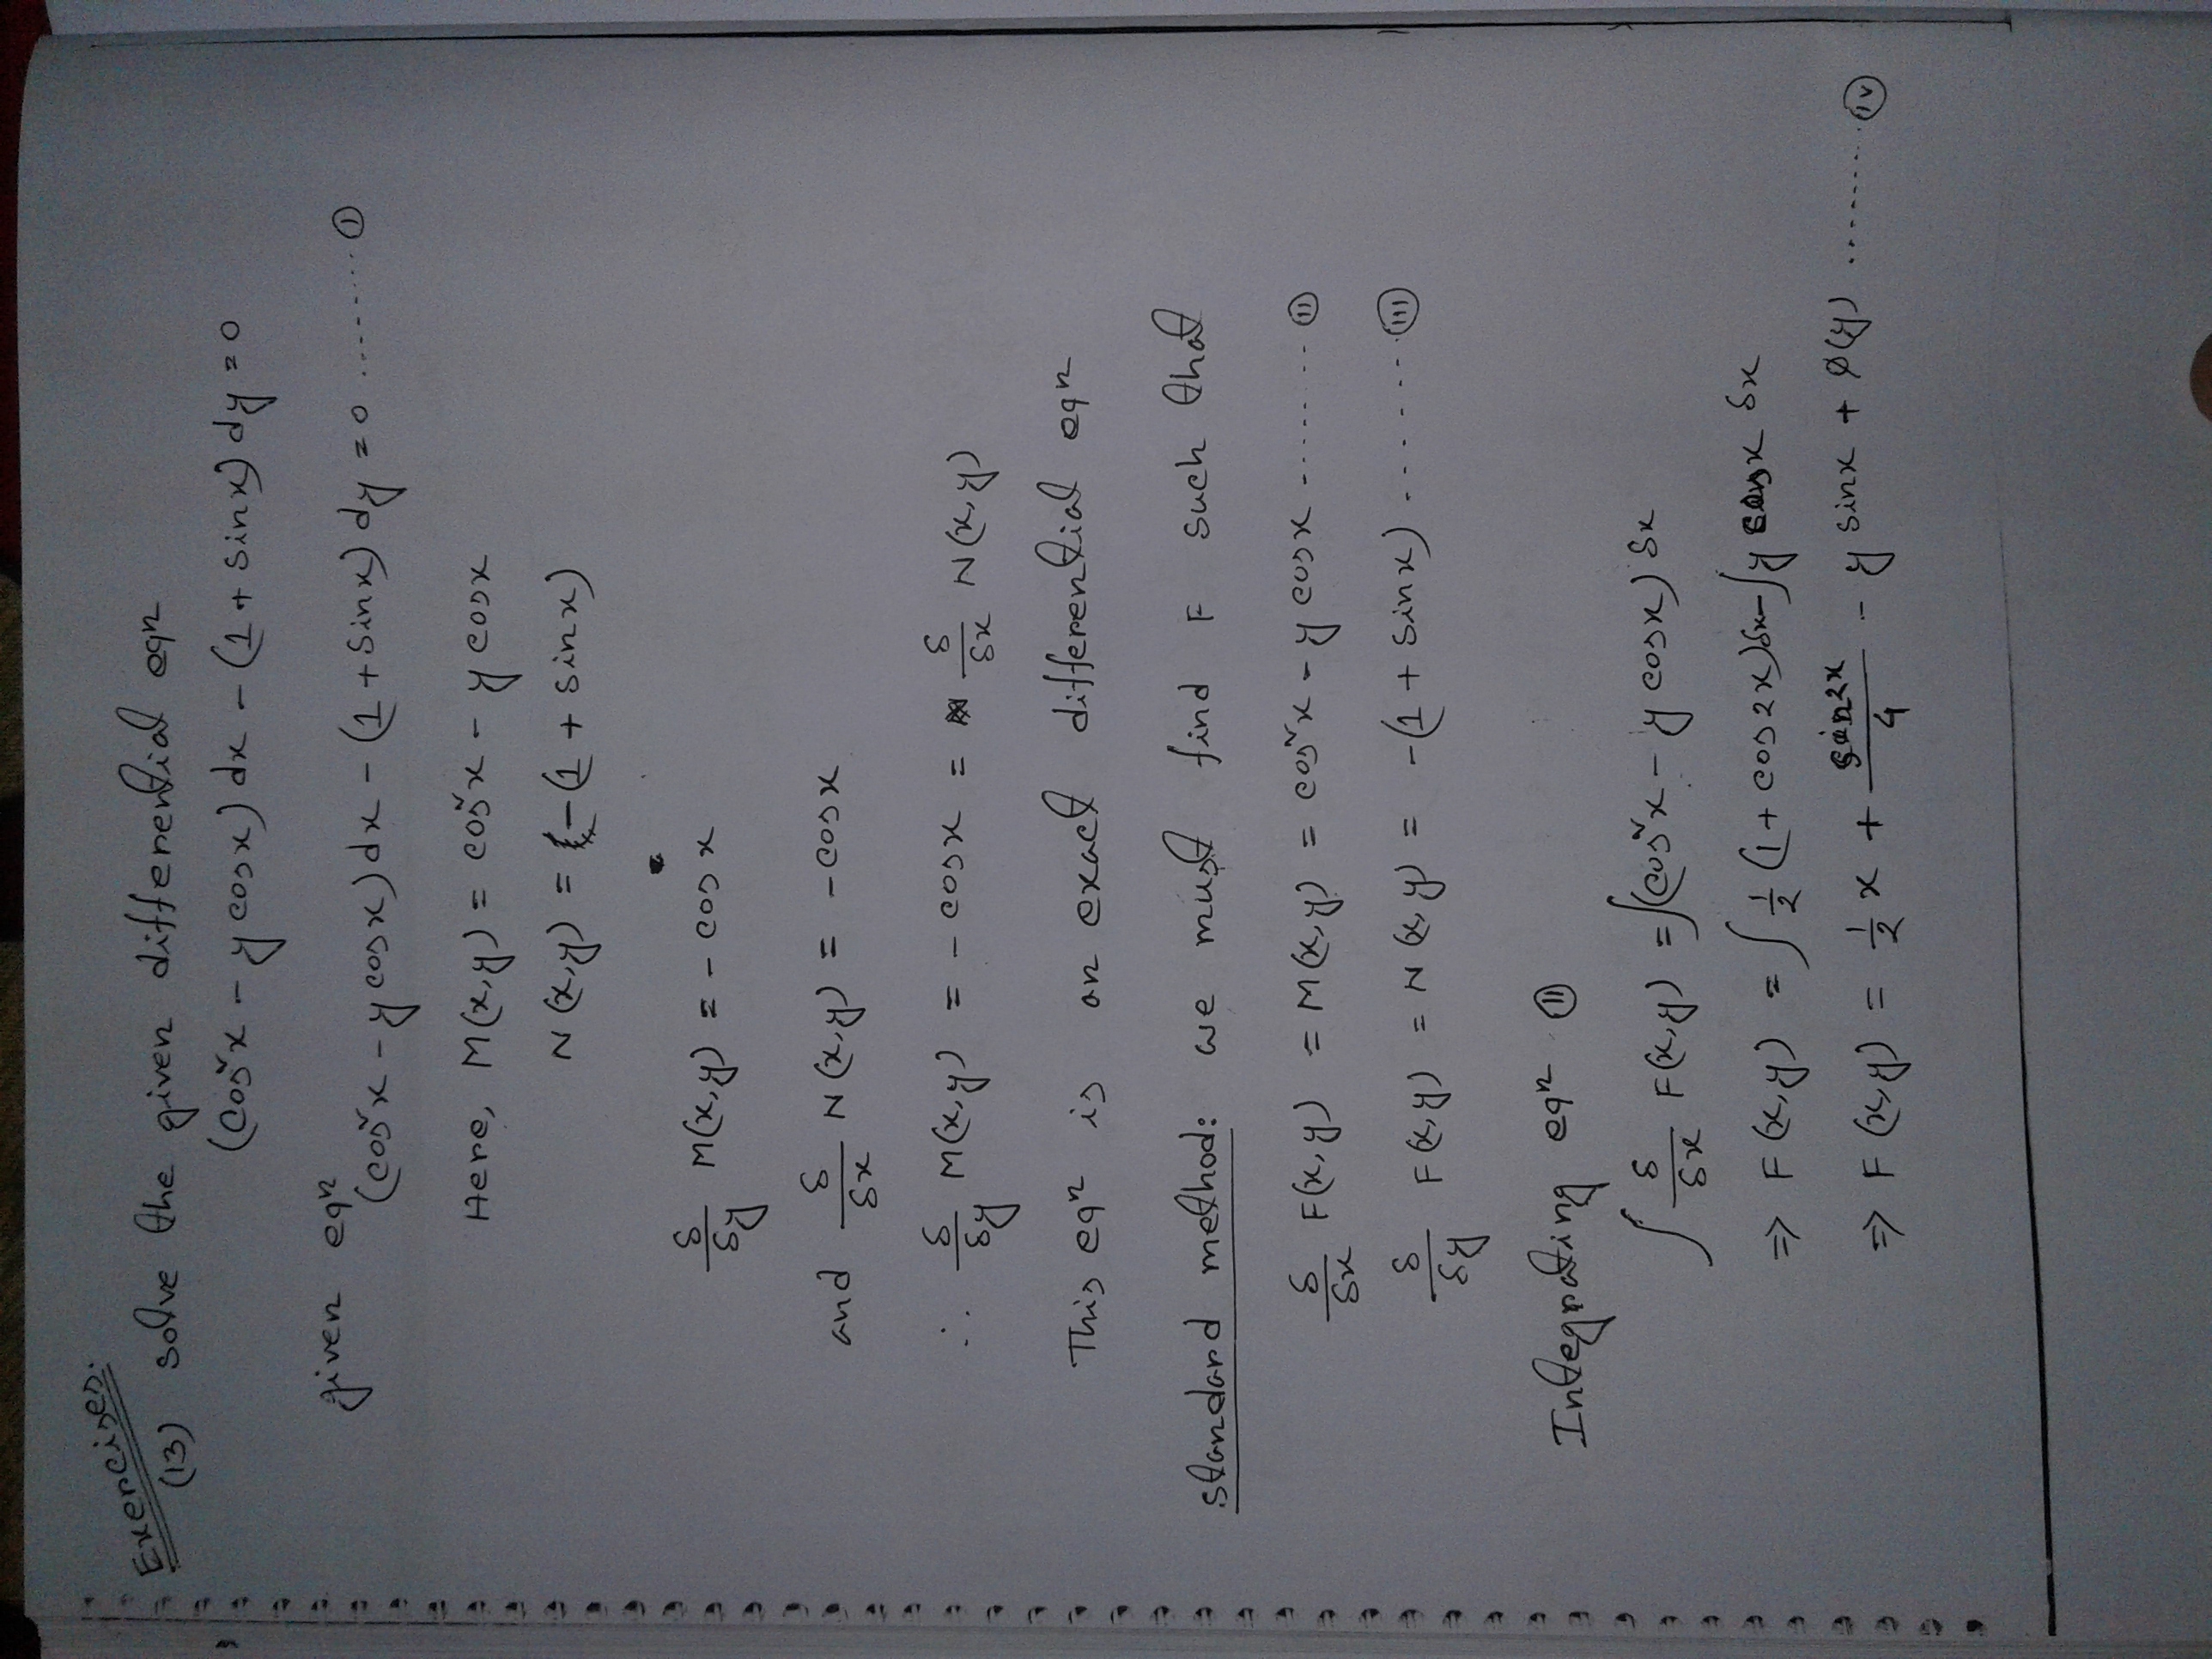 Exercises.
(13) solve the given differential eqn
(cos²x - y cosx) dx - (1 + sinx) dy = 0
given eqn
(cos²x - y cosx) dx - (1 + sinx) dy = 0 ........ (I)
Here, M(x,y) = cos²x - y cosx
N(x,y) = -(1 + sinx)
δ/δy M(x,y) = - cosx
and δ/δx N(x,y) = - cosx
∴ δ/δy M(x,y) = - cosx = δ/δx N(x,y)
This eqn is an exact differential eqn
standard method: we must find F such that
δ/δx F(x,y) = M(x,y) = cos²x - y cosx ........ (II)
δ/δy F(x,y) = N(x,y) = -(1 + sinx) ....... (III)
Integrating eqn (II)
∫ δ/δx F(x,y) = ∫(cos²x - y cosx) δx
⇒ F(x,y) = ∫ 1/2 (1 + cos2x) δx - ∫y cosx δx
⇒ F(x,y) = 1/2 x + sin2x/4 - y sinx + φ(y) ........ (IV)